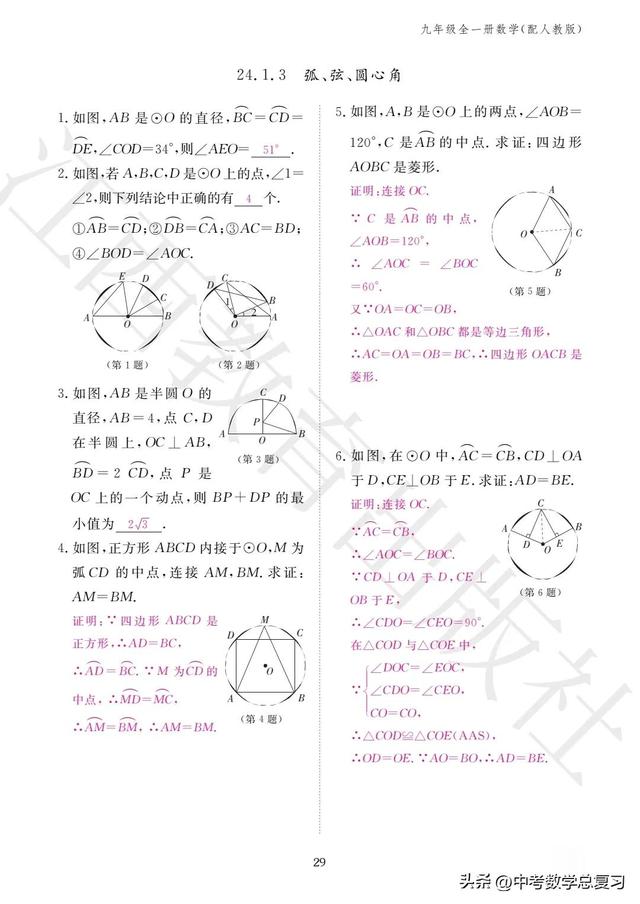 九年级全一册数学(配人教版)
24.1.3 弧、弦、圆心角
1. 如图,AB 是⊙O 的直径,BC=CD=
DE,∠COD=34°,则∠AEO= 51° .
2. 如图,若 A,B,C,D 是⊙O 上的点,∠1=
∠2,则下列结论中正确的有 4 个.
①AB=CD;②DB=CA;③AC=BD;
④∠BOD=∠AOC.
E D C A O B
D C B A O 1 2
(第 1 题) (第 2 题)
3. 如图,AB 是半圆 O 的
直径,AB=4,点 C,D
在半圆上,OC⊥AB,
BD=2 CD,点 P 是
OC 上的一个动点,则 BP+DP 的最
小值为 2√3 .
C D P A O B
(第 3 题)
4. 如图,正方形 ABCD 内接于⊙O,M 为
弧 CD 的中点,连接 AM,BM. 求证:
AM=BM.
证明:∵四边形 ABCD 是
正方形,∴AD=BC,
∴AD=BC. ∵M 为CD的
中点,∴MD=MC,
∴AM=BM,∴AM=BM.
M D C O A B
(第 4 题)
5. 如图,A,B 是⊙O 上的两点,∠AOB=
120°,C 是AB的中点. 求证:四边形
AOBC 是菱形.
证明:连接 OC.
∵ C 是 AB 的中点,
∠AOB=120°,
∴ ∠AOC = ∠BOC
=60°.
又∵OA=OC=OB,
∴△OAC 和△OBC 都是等边三角形,
∴AC=OA=OB=BC,∴四边形 OACB 是
菱形.
A O C B
(第 5 题)
6. 如图,在⊙O 中,AC=CB,CD⊥OA
于 D,CE⊥OB 于 E. 求证:AD=BE.
证明:连接 OC.
∵AC=CB,
∴∠AOC=∠BOC.
∵CD⊥OA 于 D,CE⊥
OB 于 E,
∴∠CDO=∠CEO=90°.
在△COD 与△COE 中,
∠DOC=∠EOC,
∵ ∠CDO=∠CEO,
CO=CO,
∴△COD≌△COE(AAS),
∴OD=OE. ∵AO=BO,∴AD=BE.
C A B D O E
(第 6 题)
29
江西教育出版社
头条 @中考数学总复习